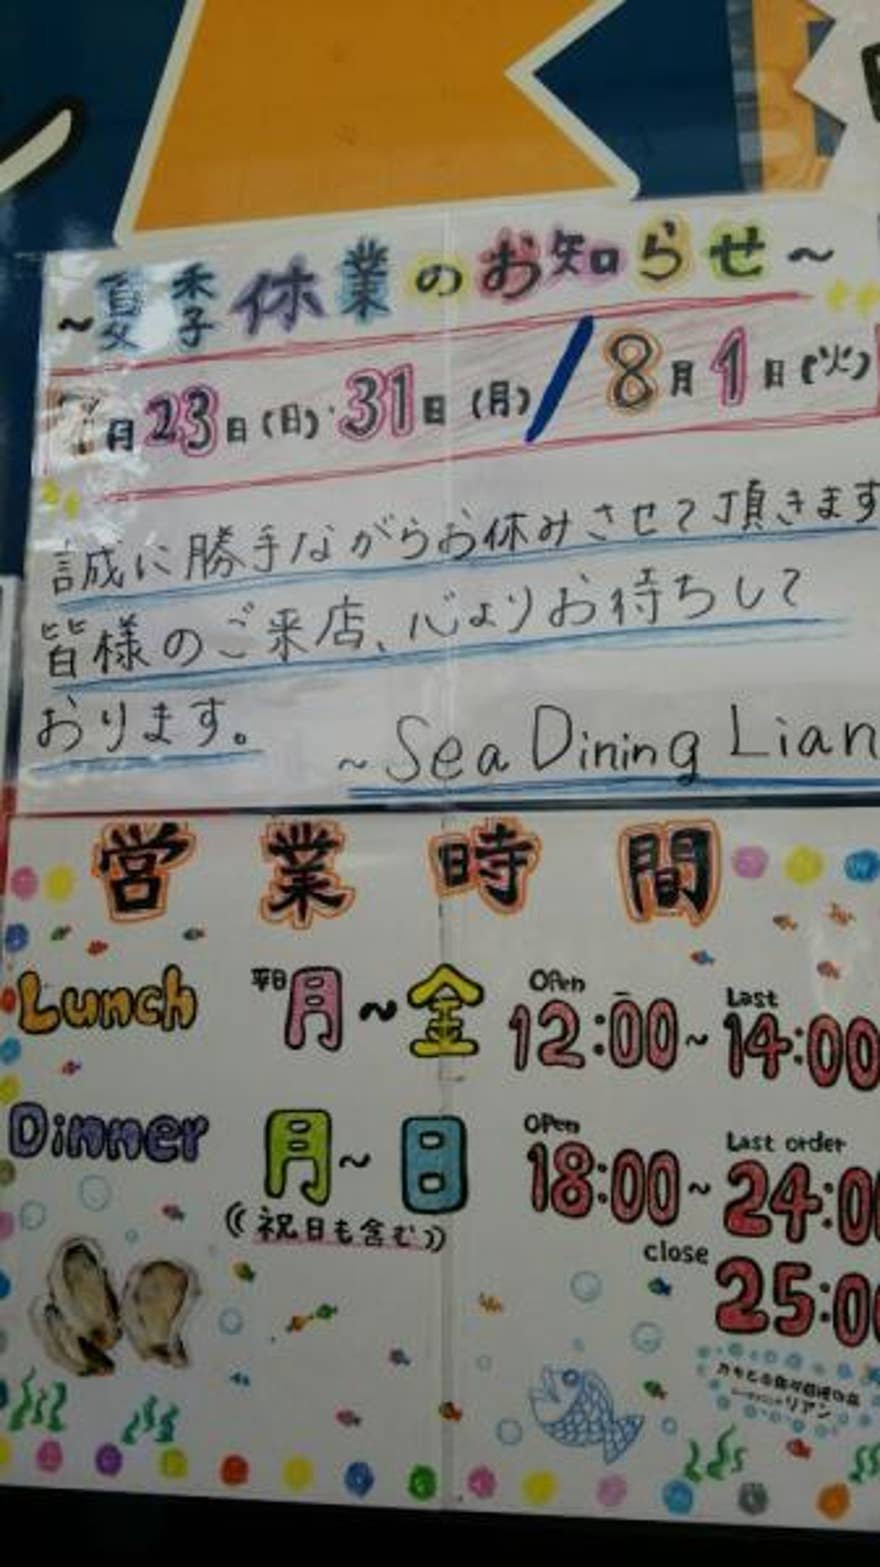 ~夏季休業のお知らせ~
7月23日(日)・31日(月)/8月1日(火)
誠に勝手ながらお休みさせて頂きます
皆様のご来店、心よりお待ちして
おります。
~Sea Dining Lian
営業時間
Lunch 平日 月~金 Open 12:00~ Last 14:00
Dinner 月~日 Open 18:00~ Last order 24:00
((祝日も含む))
close 25:00
リアン